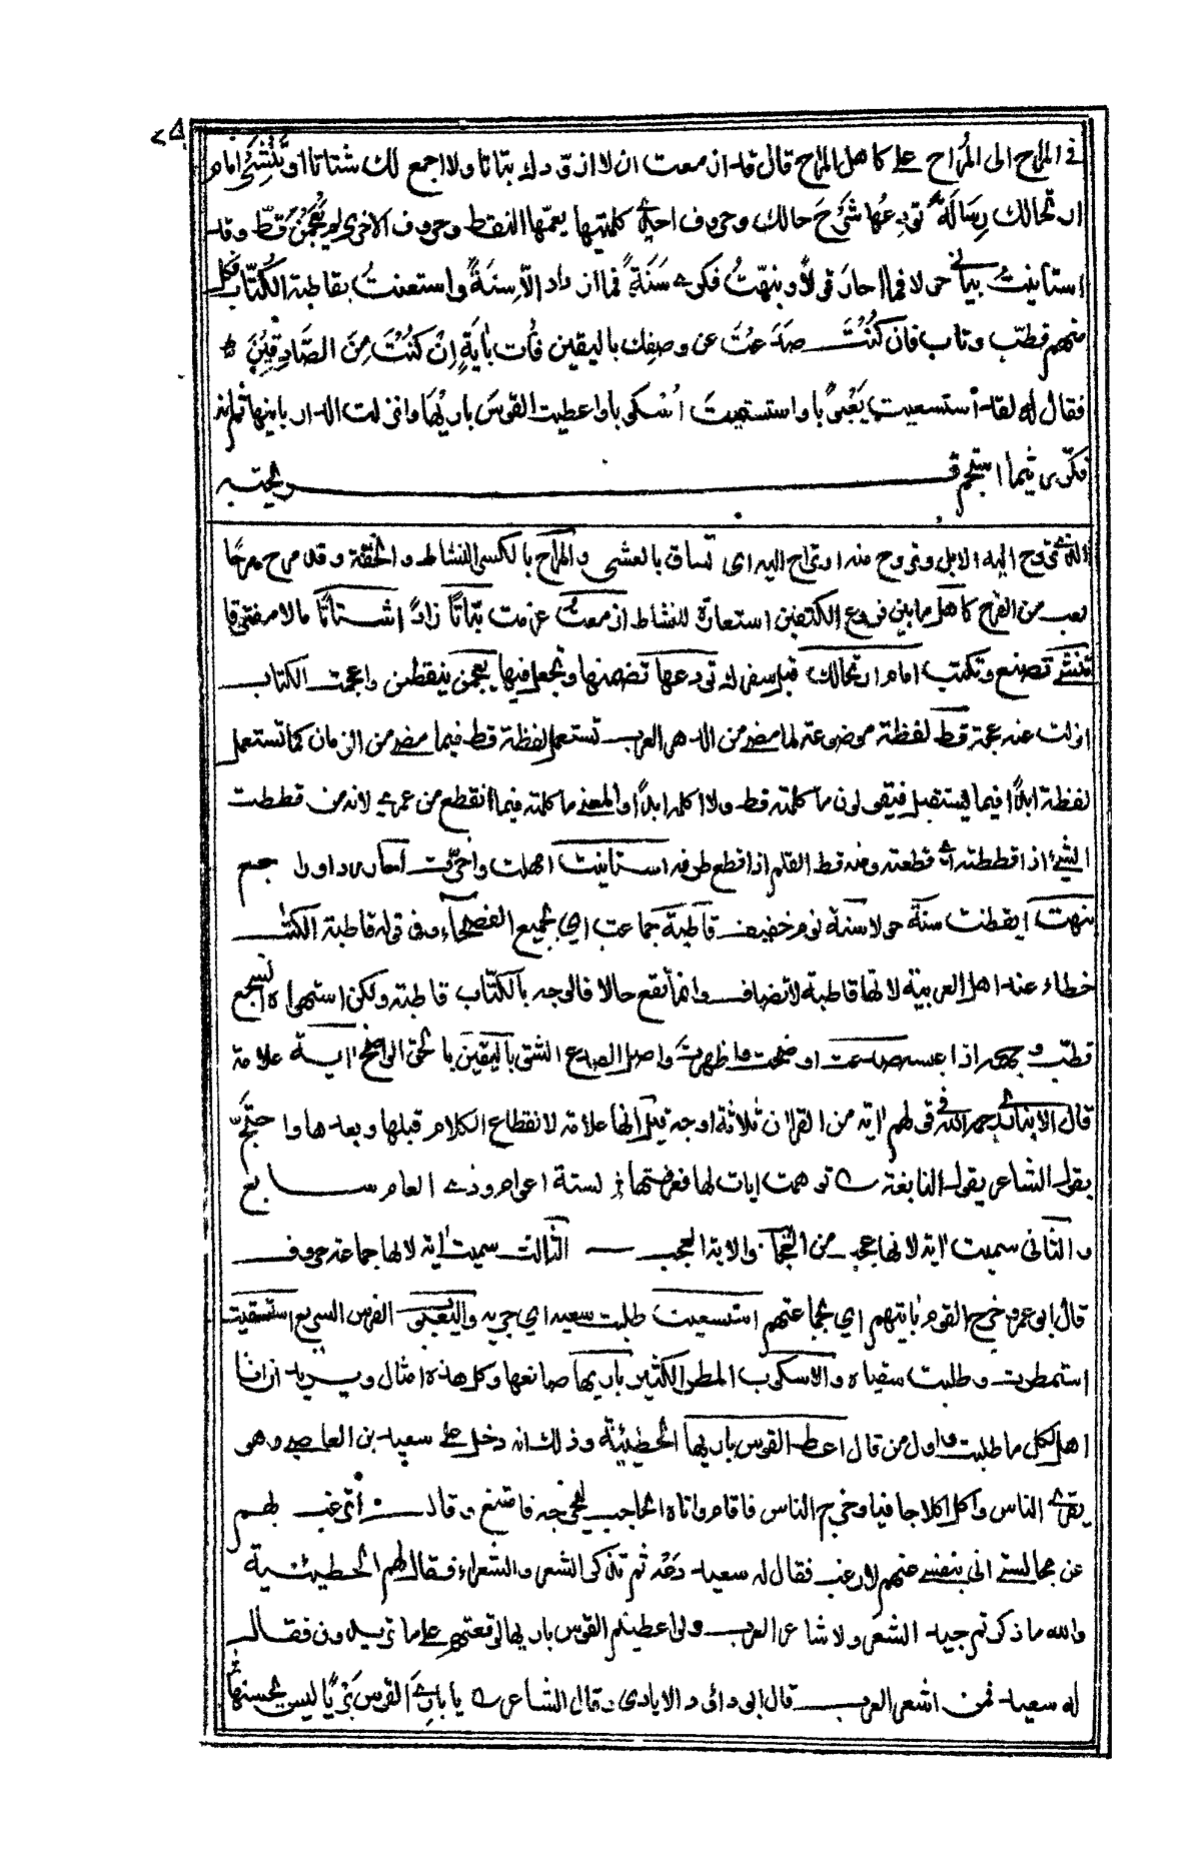 ٢٥
في المراح الى المُراح على كاهل المراح قال قد ازمعت ان لا ازودك بتاتا ولا اجمع لك شتاتا او تُنشِئَ امام
ارتحالك رِسَالَةً تودِعُها شَرْحَ حالك وحروف احدى كلمتيها يعمّها النقط وحروف الاخرى لم يُعْجَمْنَ قطّ وقد
استأنيتُ بياني حولا فما احار قولًا ونبهّتُ فكرى سَنَةً فما ازداد الّا سِنَةً واستعنتُ بقاطبة الكُتّاب فكل
منهم قطّب وتاب فان كُنْتَ صَدَعْتَ عن وصفك باليقين فأت بأيَةٍ اِنْ كُنْتَ مِنَ الصَّادِقِيْنَ
فقال له لقد استسعيت يَعْبُوبا واستسقيت اُسْكوبا واعطيت القوسَ باريْهَا وانزلت الدار بانيها ثم
فكّر ريثما استجم قريحته
اليه الابل وتروح منه او تراح اليه اى تساق بالعشي والمراح بالكسر النشاط والخفّة وقد مرح مرحًا
من الفرح كاهل ما بين فروع الكتفين استعارة للنشاط ازمعتُ عزمت بتّاتًا زادًا اشتاتًا مالا مفترقا
تنشئ تصنع وتكتب امام ارتحالك قبل سفرك تودعها تضمنها وتجعل فيها يعجمن ينقطن واعجمت الكتاب
ازلت عنه عجمة قط لفظة موضوعة لما مضى من الدهر العرب تستعمل لفظة قط فيما مضى من الزمان كما تستعمل
لفظة ابدًا فيما يستقبل فيقولون ما كلمته قط ولا اكلمه ابدًا والمعنى ما كلمته فيما انقطع من عمرى لانه من قططت
الشيء اذا قططته اى قطعته ومنه قط القلم اذا قطع طرفه استأنيت امهلت واخّرت احار رد اورد جمع
نبهت ايقظت سنة حولا سنة نوم خفيف قاطبة جماعة اي بجميع الفصحاء وفي قوله قاطبة الكتّاب
خطاء عند اهل العربية لانها قاطبة لا تضاف وانما تقع حالا فالوجه بالكتّاب قاطبة ولكن
قطّب اذا عبس صدعت اوضحت واظهرت واصل الصدع الشق باليقين بالحق الواضح اية علامة
قال الانباري رحمه الله في قولهم اية من القرأن ثلاثة اوجه قيل انها علامة لانقطاع الكلام قبلها وبعدها واحتجّ
بقول الشاعر يقول النابغة توهمت ايات لها فعرفتها لستة اعوام وذى العام سابع
والثانى سميت اية لانها عجب من العجائب والاية العجب الثالث سميت اية لانها جماعة حروف
قال ابوعمرو خرج القوم بايتهم اي بجماعتهم استسعيت طلبت سعيه اي جريه واليعبوب الفرس السريع استسقيت
استمطرت وطلبت سقياه والاسكوب المطر الكثير باريها صانعها وكل هذه امثال ويريد انى انا
اهل لكل ما طلبت واول من قال اعط القوس باريها الحطيئة وذلك انه دخل على سعيد بن العاصي وهو
يقرى الناس واكل اكلا جافيا وخرج الناس فاقام واتاه الحاجب ليخرجه فامتنع وقال أترغب بهم
عن مجالستي انى بنفسي عنهم لارغب فقال له سعيد دعه ثم تذاكر الشعر والشعراء فقال لهم الحطيئية
والله ما ذكرتم جيد الشعر ولا شاعر العرب ولو اعطيتم القوس باريها لوقعتم على ما تريدون فقال
له سعيد فمن اشعر العرب قال ابو دائود الايادى وقال الشاعر يا بارى القوس بَرْيًا ليس يحسنها